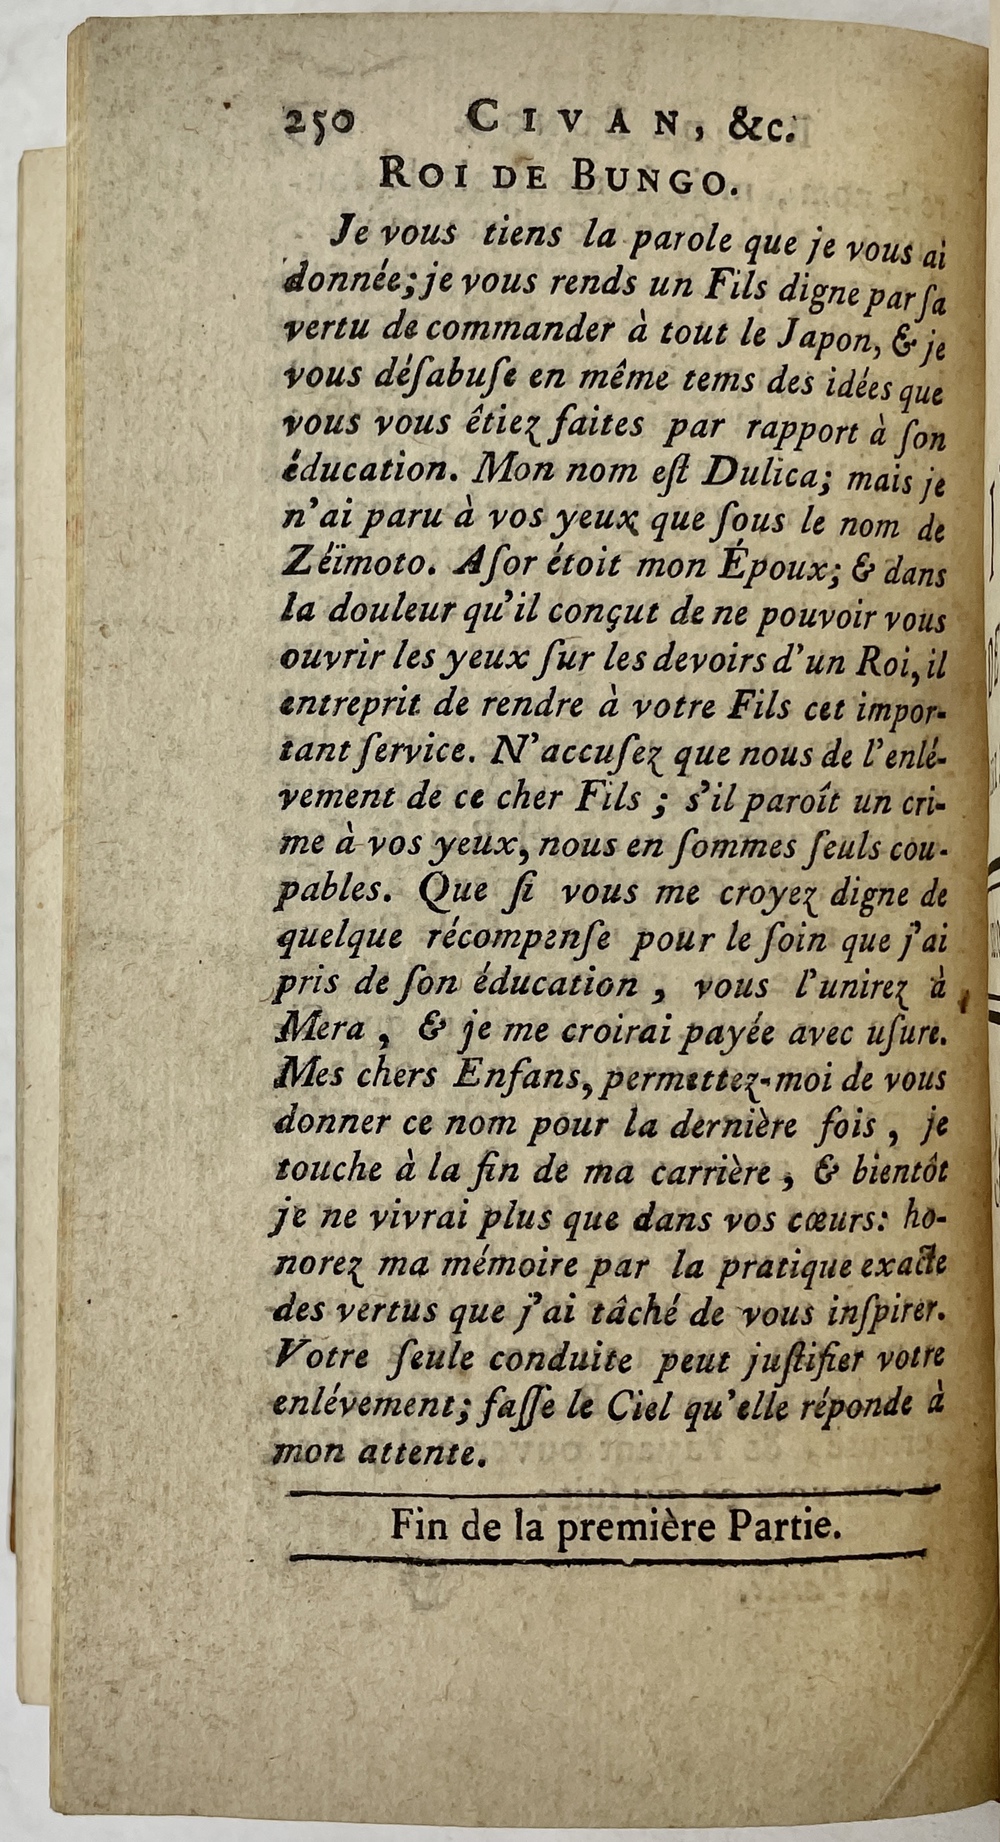 250 CIVAN, &c.
ROI DE BUNGO.
Je vous tiens la parole que je vous ai
donnée; je vous rends un Fils digne par ſa
vertu de commander à tout le Japon, & je
vous déſabuſe en même tems des idées que
vous vous êtiez faites par rapport à ſon
éducation. Mon nom eſt Dulica; mais je
n'ai paru à vos yeux que ſous le nom de
Zéïmoto. Aſor étoit mon Époux; & dans
la douleur qu'il conçut de ne pouvoir vous
ouvrir les yeux ſur les devoirs d'un Roi, il
entreprit de rendre à votre Fils cet impor-
tant ſervice. N'accuſez que nous de l'enlé-
vement de ce cher Fils ; s'il paroît un cri-
me à vos yeux, nous en ſommes ſeuls cou-
pables. Que ſi vous me croyez digne de
quelque récompenſe pour le ſoin que j'ai
pris de ſon éducation , vous l'unirez à
Mera , & je me croirai payée avec uſure.
Mes chers Enfans, permettez-moi de vous
donner ce nom pour la dernière fois , je
touche à la fin de ma carrière , & bientôt
je ne vivrai plus que dans vos cœurs: ho-
norez ma mémoire par la pratique exacte
des vertus que j'ai tâché de vous inſpirer.
Votre ſeule conduite peut juſtifier votre
enlévement; faſſe le Ciel qu'elle réponde à
mon attente.
Fin de la première Partie.